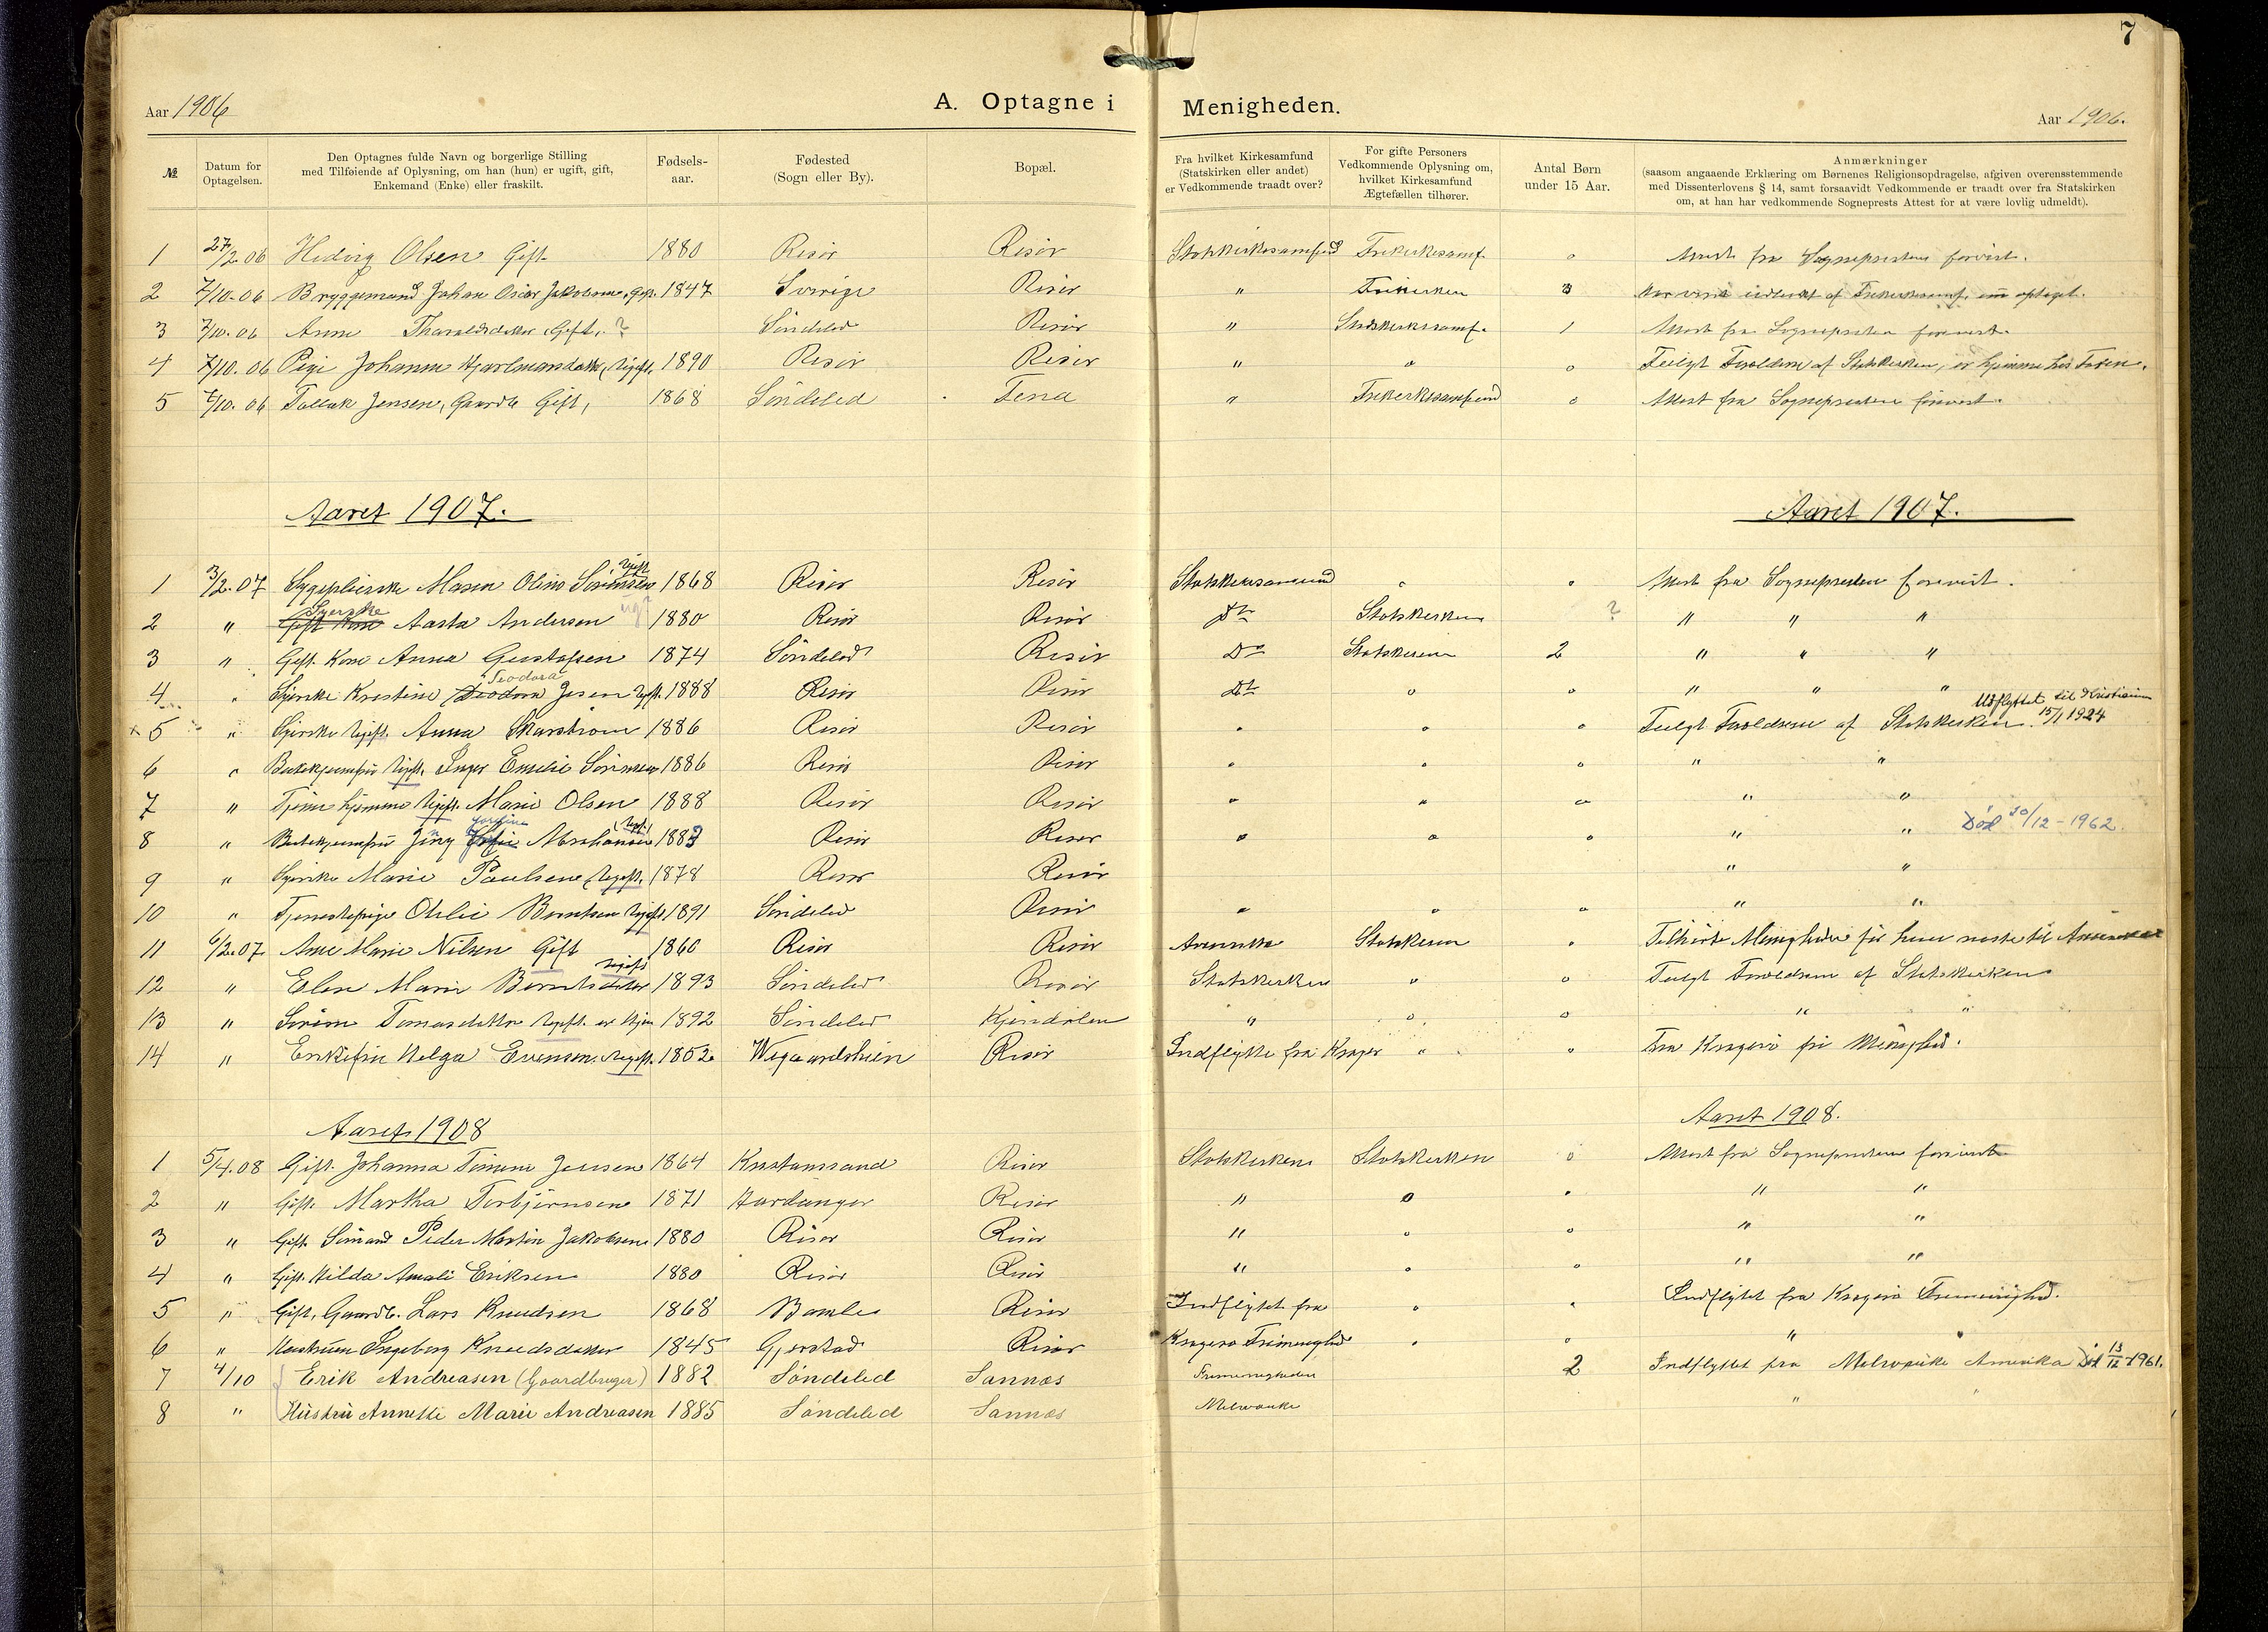 7
Aar 1906
A. Optagne i Menigheden.
Aar 1906.
№
Datum for Optagelsen.
Den Optagnes fulde Navn og borgerlige Stilling med Tilføiende af Oplysning, om han (hun) er ugift, gift, Enkemand (Enke) eller fraskilt.
Fødsels-aar.
Fødested (Sogn eller By).
Bopæl.
Fra hvilket Kirkesamfund (Statskirken eller andet) er Vedkommende traadt over?
For gifte Personers Vedkommende Oplysning om, hvilket Kirkesamfund Ægtefællen tilhører.
Antal Børn under 15 Aar.
Anmærkninger (saasom angaaende Erklæring om Børnenes Religionsopdragelse, afgiven overensstemmende med Dissenterlovens § 14, samt forsaavidt Vedkommende er traadt over fra Statskirken om, at han har vedkommende Sogneprests Attest for at være lovlig udmeldt).
1 27/2.06 Hedvig Olsen Gift 1880 Risør Risør Frikirkesamf. 0 Attest fra Sognepresten forevist.
2 7/10.06 Bryggemand Johan Oscar Jakobsen, Gift. 1847 Sverige Risør " Frikirken 3
3 7/10.06 Anne Tharaldsdatter Gift, ? Søndeled Risør " Statskirkesamf. 1 Attest fra Sognepresten forevist.
4 7/10.06 Johanne Ugift, 1890 Risør Risør " " 0 Fulgt Forældrene af Statskirken, er hjemme hos
5 7/10.06 Tallak Jensen, Gaardb. Gift, 1868 Søndeled " Frikirkesamfund 0 Attest fra Sognepresten forevist.
Aaret 1907.
Aaret 1907.
1 3/2.07 Sygepleierske Maren Olina Sørensen Ugift 1868 Risør Risør " 0 Attest fra Sognepresten forevist.
2 " Syerske Aasta Andersen ug? 1880 Risør Risør Do Statskirken ? " " "
3 " Gift Kone Anna Gustafsen 1874 Søndeled Risør Do Statskirken 2 " " "
4 " Syerske Kristine Teodora Ugift. 1888 Risør Risør Do 0 0 " " "
× 5 " Syerske Ugift. Anna Skarstrøm 1886 Risør Risør " " 0 Fulgt Forældrene af Statskirken. Udflyttet til Kristiania 15/1 1924
6 " Ugift. Inger Emilie Sørensen 1886 Risør Risør " " 0 " "
7 " Tjener hjemme Ugift. Marie Olsen 1888 Risør Risør " " " " "
8 " Ugift 1883 Risør Risør " " 0 " " Død 30/12-1962.
9 " Syerske Marie Paulsen, Ugift. 1878 Risør Risør " "
10 " Tjenestepige Berntsen Ugift 1891 Søndeled Risør " " " " "
11 6/2.07 Ane Marie Nilsen Gift 1860 Risør Risør Amerika Statskirken " Tilhørte Menigheden før hun reiste til Amerika
12 " Elen Marie Berntsdatter Ugift 1893 Søndeled Risør Statskirken " 0 Fulgt Forældrene af Statskirken
13 " Tomasdatter Ugift. 1892 Søndeled " " 0 " "
14 " Enkefru Helga Evensen. Ugift. 1852 Risør Indflytte fra Krager " " Fra Kragerø fri Menighed.
Aaret 1908
Aaret 1908.
1 5/4.08 Gift. Johanna Jensen 1864 Kristianssand Risør Statskirken Statskirken 0 Attest fra Sognepresten forevist
2 " Gift. Martha Torbjørnsen 1871 Hardanger Risør " 0 " " "
3 " Gift. Sømand Peder Martin Jakobsen 1880 Risør Risør " 0 0 " "
4 " Gift. Hilda Amali Eriksen 1880 Risør Risør " " 0 " "
5 " Gift, Gaardb. Lars Knudsen 1868 Bamble Risør Indflytet fra " " Indflytet fra Kragerø Frimenighed.
6 " Ingeborg Knudsdatter 1845 Gjerstad Risør Kragerø Frimenighed " 0 " "
7 4/10 Erik Andreasen (Gaardbruger) 1882 Søndeled Sannæs Frimenigheden 2 Indflyttet fra Melwauke Amerika Død 13/12-1961.
8 " Hüstrü Annette Marie Andreasen 1885 Søndeled Sannæs Melwauke "